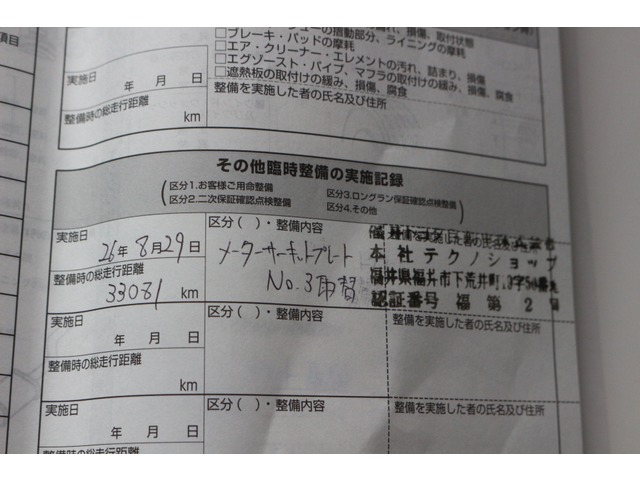 項目
の摺動部分、ライニングの摩耗
□ブレーキ・パッドの摩耗
□エア・クリーナー・エレメントの汚れ、詰まり、損傷
□エグゾースト・パイプ、マフラの取付けの緩み、損傷、腐食
□遮熱板の取付けの緩み、損傷、腐食
実施日
年 月 日
整備を実施した者の氏名及び住所
整備時の総走行距離
km
その他臨時整備の実施記録
区分1.お客様ご用命整備 区分3.ロングラン保証確認点検整備
区分2.二次保証確認点検整備 区分4.その他
実施日
26年8月29日
整備時の総走行距離
33081 km
区分( )・整備内容
メーターサーキットプレート
No.3取替
本社テクノショップ
福井県福井市下荒井町
認証番号 福第2
実施日
年 月 日
整備時の総走行距離
km
区分( )・整備内容
整備を実施した者の氏名及び住所
実施日
年 月 日
整備時の総走行距離
区分( )・整備内容
整備を実施した者の氏名及び住所